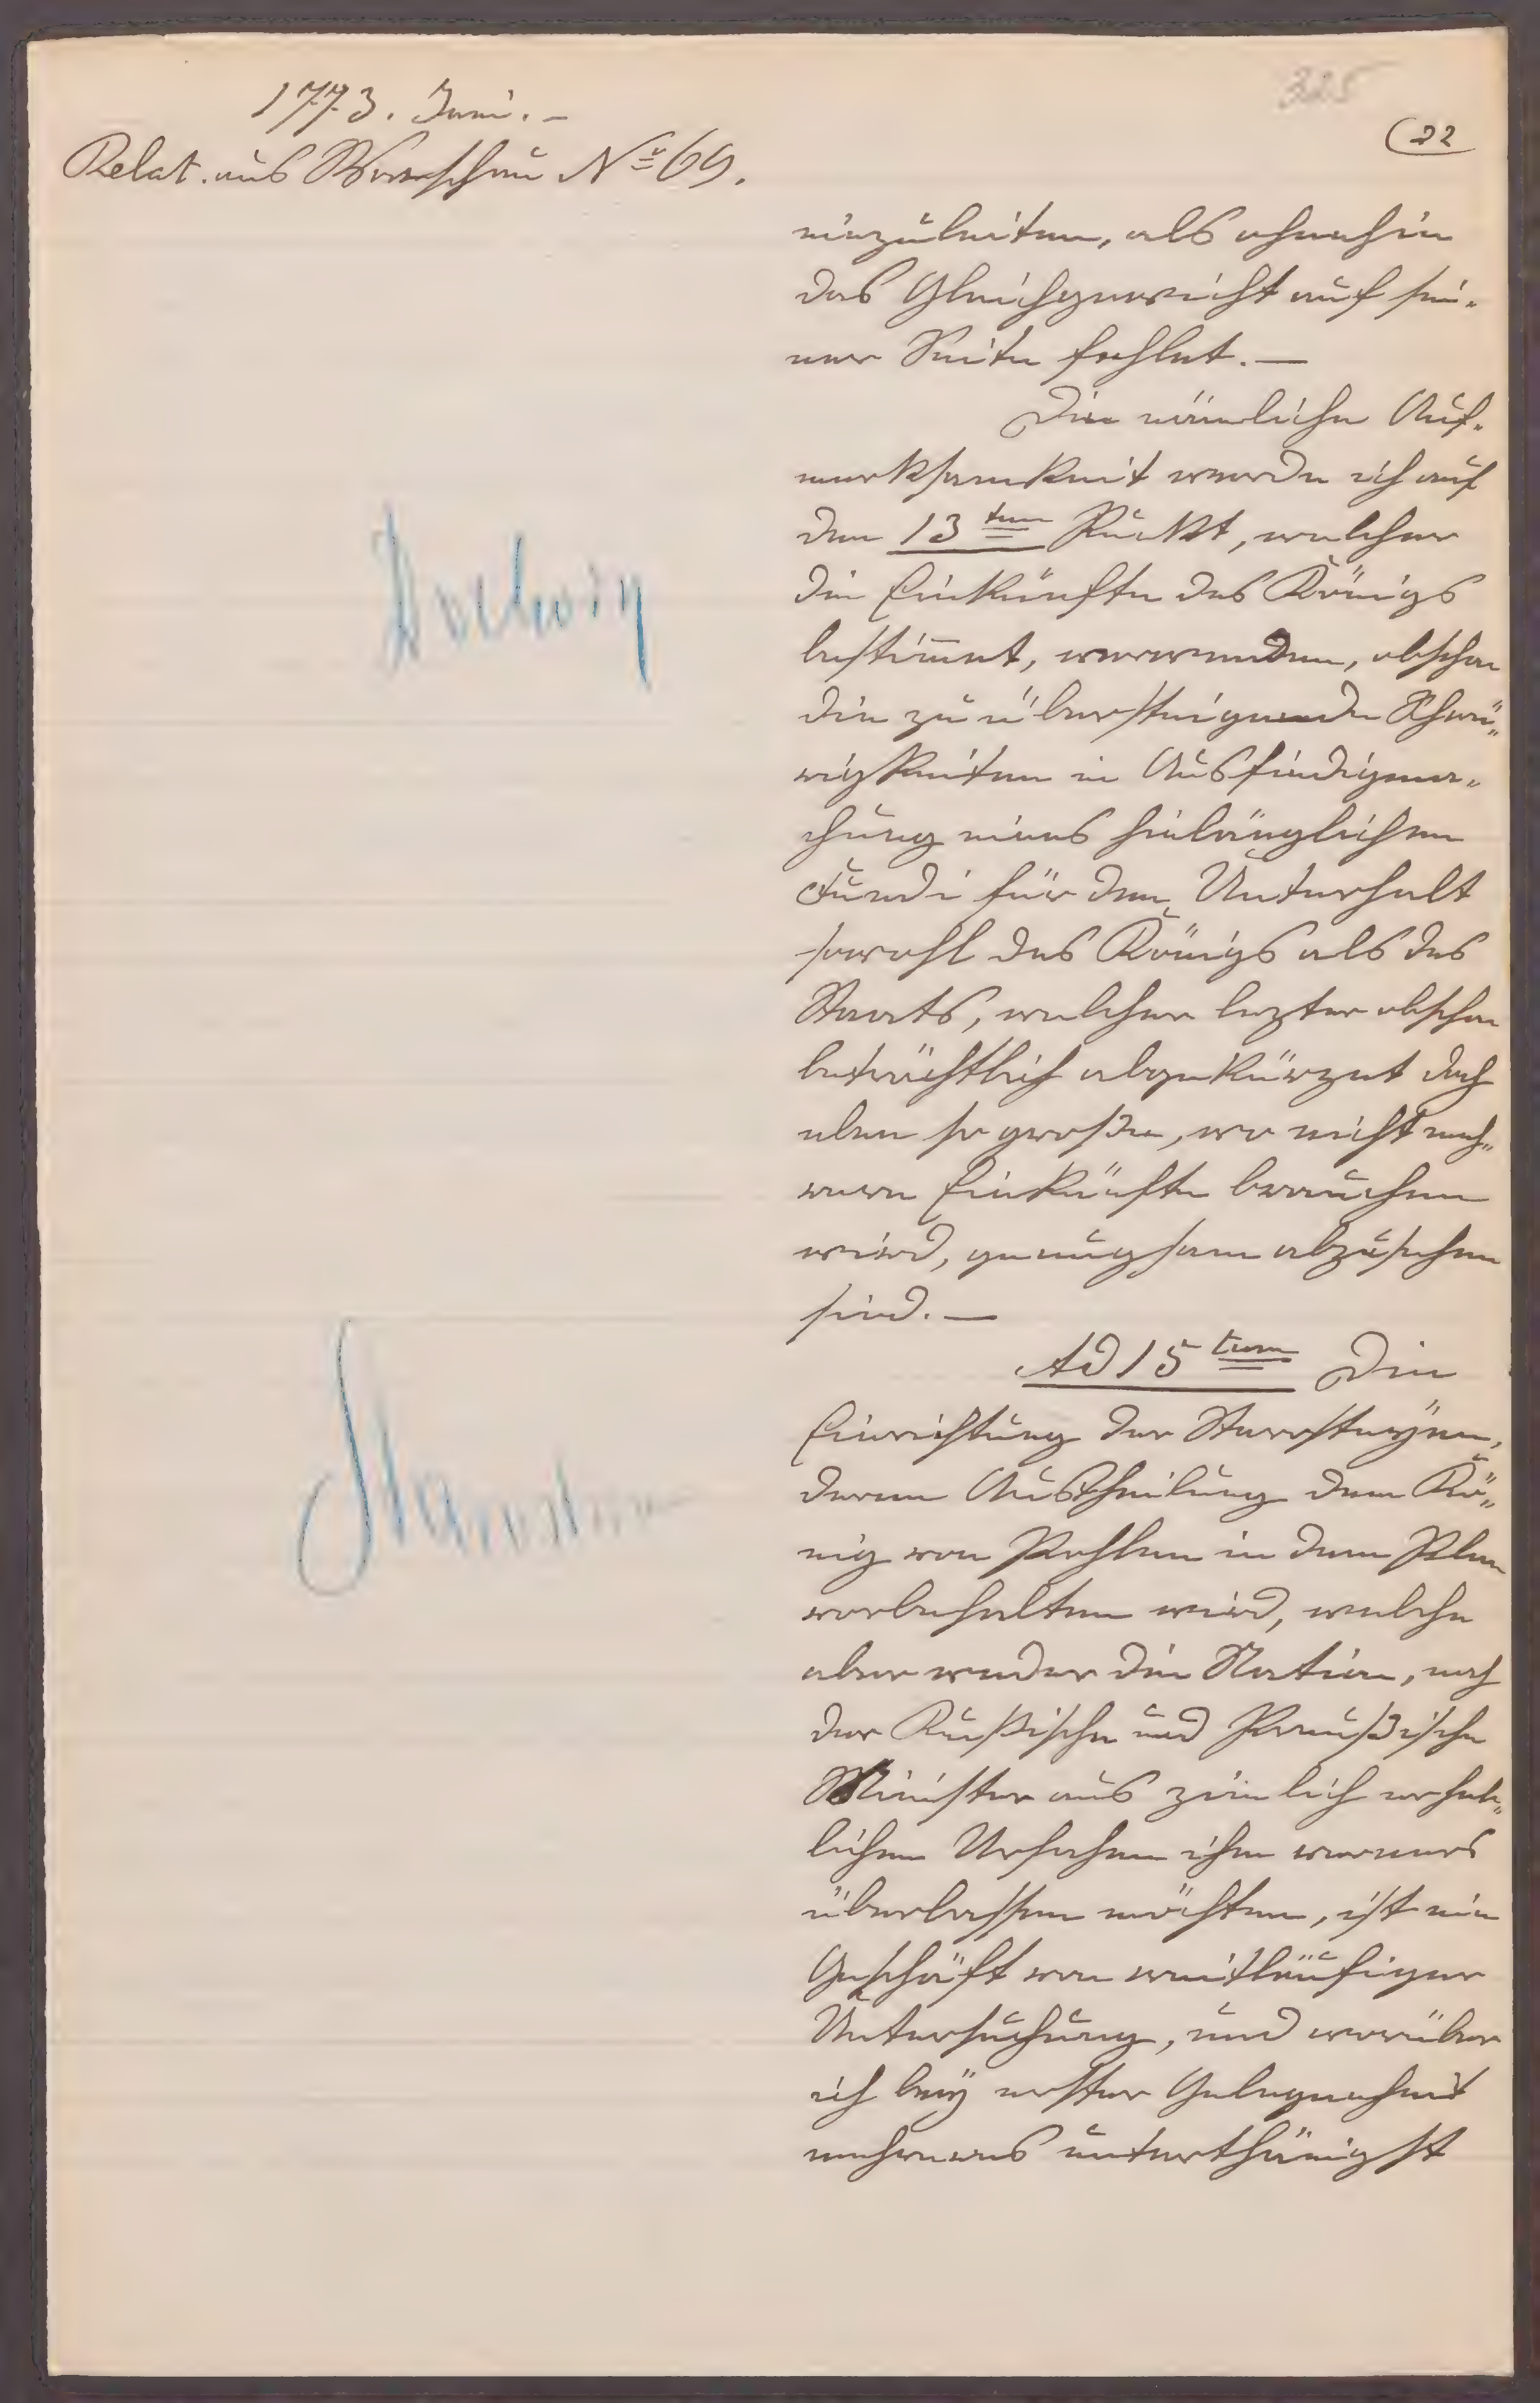 1773. Juni. –
325
22
Relat. aus Warschau № 69.
einzuleiten, als ohnehin
das Gleichgewicht auf sei-
ner Seite fehlet. —
Die nämliche Auf-
merksamkeit werde ich auf
den 13ten Punkt, welcher
die Einkünfte des Königs
bestim̄et, verwenden, obschon
die zu übersteigende Schwü-
rigkeiten in Ausfindigma-
chung eines hinlänglichen
Fundi für den Unterhalt
sowohl des Königs als des
Staats, welcher lezter obschon
beträchtlich abgekürzet doch
eben so große, wo nicht meh-
rere Einkünfte brauchen
wird, genugsam abzusehen
sind. —
Ad 15tum Die
Einrichtung der Starosteyen,
deren Austheilung dem Kö-
nig von Pohlen in dem Plan
vorbehalten wird, welche
aber weder die Nation, noch
der Rußische und Preußische
Minister aus zimlich erheb-
lichen Ursachen ihm
überlassen möchten, ist ein
Geschäft von weitläufiger
Untersuchung, und worüber
ich bey erster Gelegenheit
mehreres unterthänigst
Dochody
Starostwa